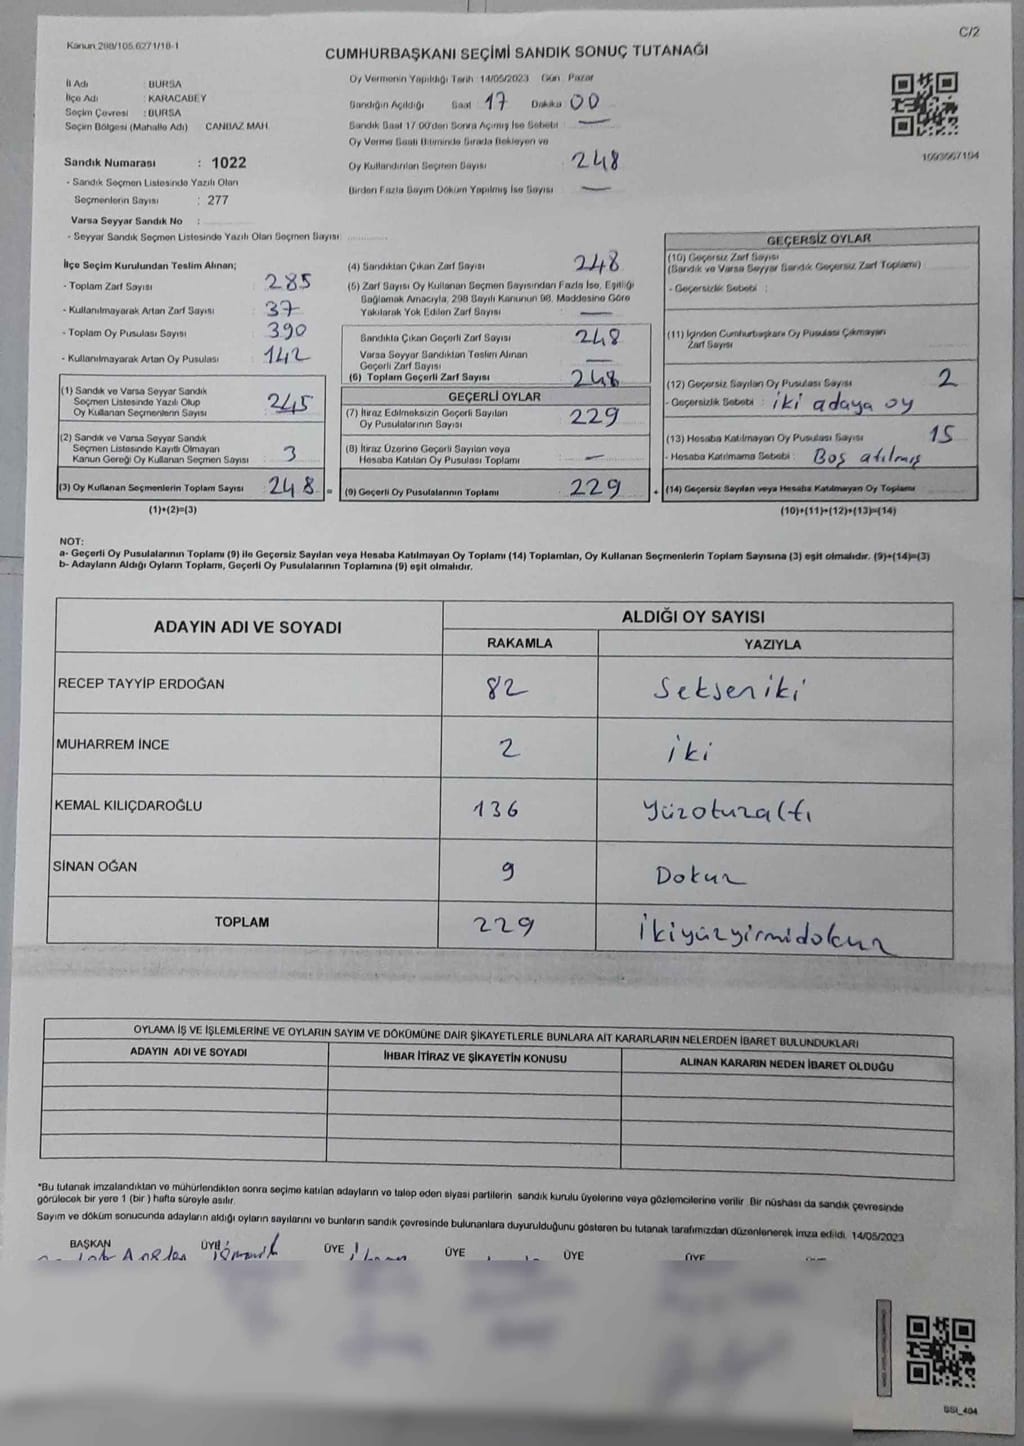 Kanun 298/105.6271/18-1
C/2
CUMHURBAŞKANI SEÇİMİ SANDIK SONUÇ TUTANAĞI
İl Adı : BURSA
İlçe Adı : KARACABEY
Seçim Çevresi : BURSA
Seçim Bölgesi (Mahalle Adı) CANBAZ MAH.
Sandık Numarası : 1022
- Sandık Seçmen Listesinde Yazılı Olan
Seçmenlerin Sayısı : 277
Varsa Seyyar Sandık No :
- Seyyar Sandık Seçmen Listesinde Yazılı Olan Seçmen Sayısı:
Oy Vermenin Yapıldığı Tarih 14/05/2023 Gün Pazar
Sandığın Açıldığı Saat 17 Dakika 00
Sandık Saat 17:00'den Sonra Açılmış İse Sebebi : —
Oy Verme Saati Bitiminde Sırada Bekleyen ve
Oy Kullandırılan Seçmen Sayısı 248
Birden Fazla Sayım Döküm Yapılmış İse Sayısı —
1093667194
İlçe Seçim Kurulundan Teslim Alınan;
- Toplam Zarf Sayısı : 285
- Kullanılmayarak Artan Zarf Sayısı : 37
- Toplam Oy Pusulası Sayısı : 390
- Kullanılmayarak Artan Oy Pusulası : 142
(1) Sandık ve Varsa Seyyar Sandık
Seçmen Listesinde Yazılı Olup
Oy Kullanan Seçmenlerin Sayısı : 245
(2) Sandık ve Varsa Seyyar Sandık
Seçmen Listesinde Kayıtlı Olmayan
Kanun Gereği Oy Kullanan Seçmen Sayısı : 3
(3) Oy Kullanan Seçmenlerin Toplam Sayısı 248 =
(1)+(2)=(3)
(4) Sandıktan Çıkan Zarf Sayısı 248
(5) Zarf Sayısı Oy Kullanan Seçmen Sayısından Fazla İse, Eşitliği
Sağlamak Amacıyla, 298 Sayılı Kanunun 98. Maddesine Göre
Yakılarak Yok Edilen Zarf Sayısı : —
Sandıkta Çıkan Geçerli Zarf Sayısı 248
Varsa Seyyar Sandıktan Teslim Alınan
Geçerli Zarf Sayısı —
(6) Toplam Geçerli Zarf Sayısı 248
GEÇERLİ OYLAR
(7) İtiraz Edilmeksizin Geçerli Sayılan
Oy Pusulalarının Sayısı 229
(8) İtiraz Üzerine Geçerli Sayılan veya
Hesaba Katılan Oy Pusulası Toplamı —
(9) Geçerli Oy Pusulalarının Toplamı 229 +
GEÇERSİZ OYLAR
(10) Geçersiz Zarf Sayısı
(Sandık ve Varsa Seyyar Sandık Geçersiz Zarf Toplamı)
- Geçersizlik Sebebi :
(11) İçinden Cumhurbaşkanı Oy Pusulası Çıkmayan
Zarf Sayısı
(12) Geçersiz Sayılan Oy Pusulası Sayısı 2
- Geçersizlik Sebebi : iki adaya oy
(13) Hesaba Katılmayan Oy Pusulası Sayısı 15
- Hesaba Katılmama Sebebi : Boş atılmış
(14) Geçersiz Sayılan veya Hesaba Katılmayan Oy Toplamı
(10)+(11)+(12)+(13)=(14)
NOT:
a- Geçerli Oy Pusulalarının Toplamı (9) ile Geçersiz Sayılan veya Hesaba Katılmayan Oy Toplamı (14) Toplamları, Oy Kullanan Seçmenlerin Toplam Sayısına (3) eşit olmalıdır. (9)+(14)=(3)
b- Adayların Aldığı Oyların Toplamı, Geçerli Oy Pusulalarının Toplamına (9) eşit olmalıdır.
ADAYIN ADI VE SOYADI
ALDIĞI OY SAYISI
RAKAMLA YAZIYLA
RECEP TAYYİP ERDOĞAN 82 Sekseniki
MUHARREM İNCE 2 iki
KEMAL KILIÇDAROĞLU 136 Yüzotuzaltı
SİNAN OĞAN 9 Dokuz
TOPLAM 229 İkiyüzyirmidokuz
OYLAMA İŞ VE İŞLEMLERİNE VE OYLARIN SAYIM VE DÖKÜMÜNE DAİR ŞİKAYETLERLE BUNLARA AİT KARARLARIN NELERDEN İBARET BULUNDUKLARI
ADAYIN ADI VE SOYADI İHBAR İTİRAZ VE ŞİKAYETİN KONUSU ALINAN KARARIN NEDEN İBARET OLDUĞU
*Bu tutanak imzalandıktan ve mühürlendikten sonra seçime katılan adayların ve talep eden siyasi partilerin sandık kurulu üyelerine veya gözlemcilerine verilir. Bir nüshası da sandık çevresinde
görülecek bir yere 1 (bir ) hafta süreyle asılır.
Sayım ve döküm sonucunda adayların aldığı oyların sayılarını ve bunların sandık çevresinde bulunanlara duyurulduğunu gösteren bu tutanak tarafımızdan düzenlenerek imza edildi. 14/05/2023
BAŞKAN ÜYE ÜYE ÜYE ÜYE ÜYE
SSI_404